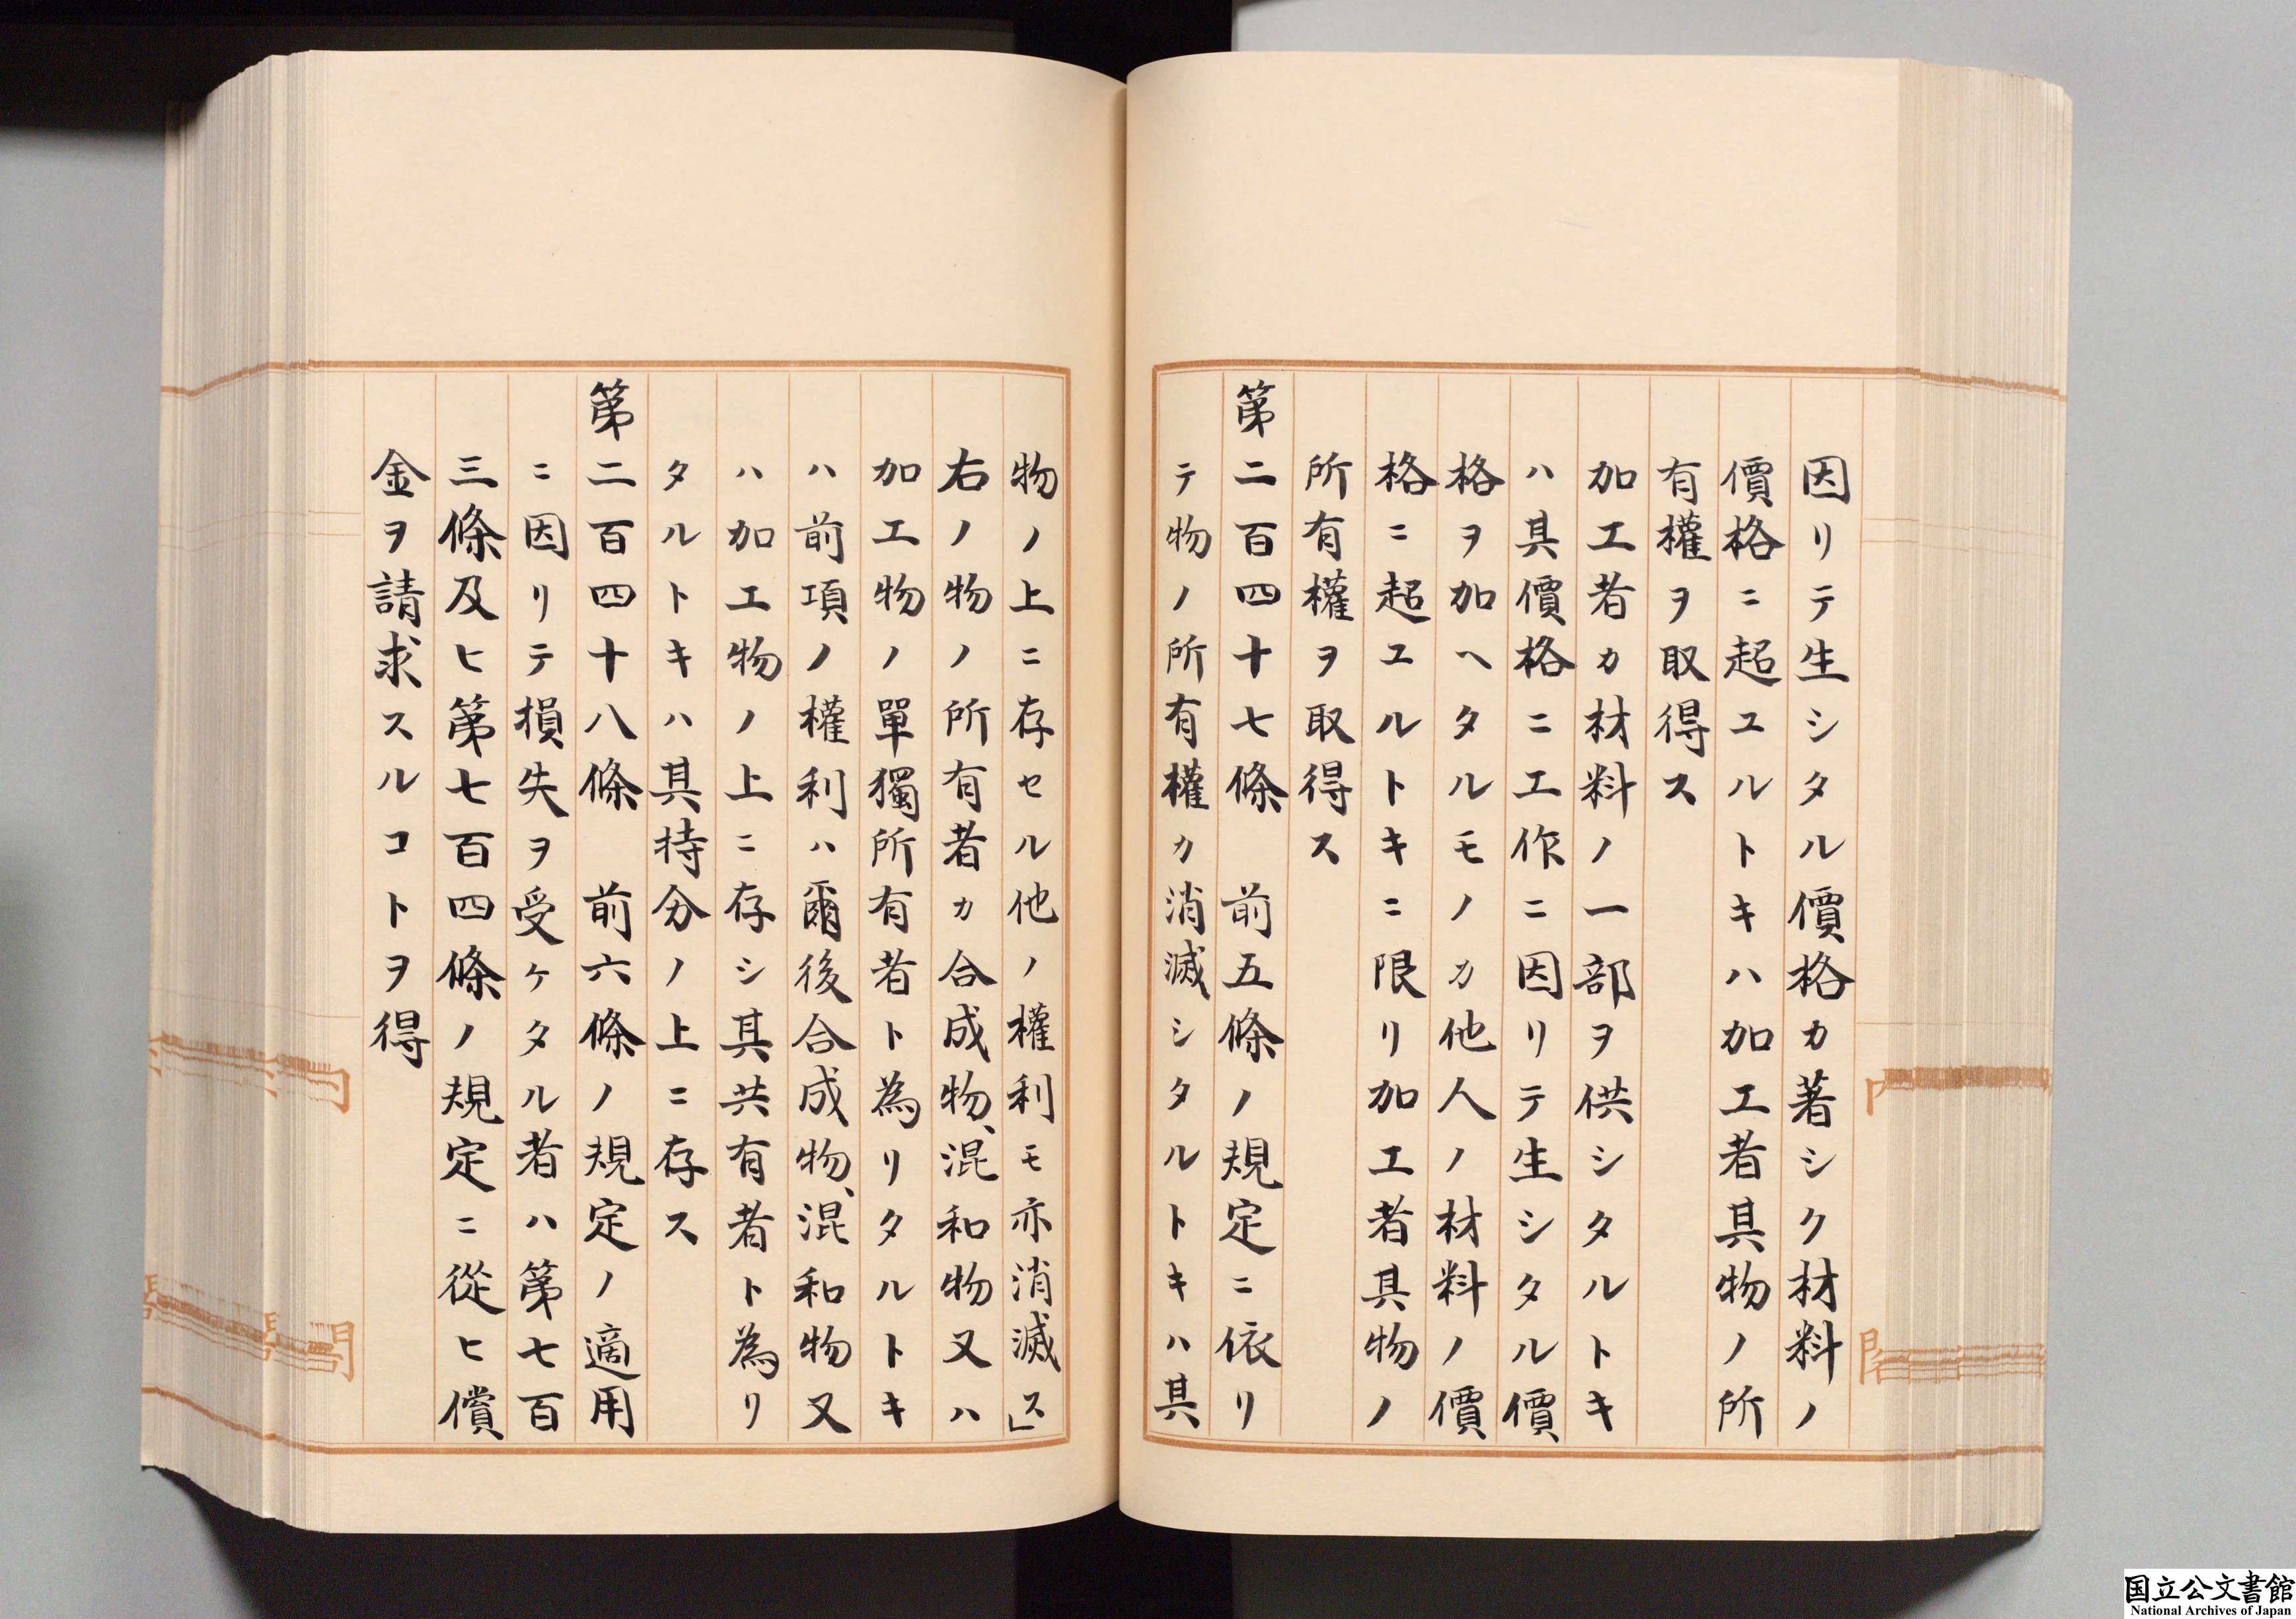 因リテ生シタル價格カ著シク材料ノ
價格ニ超ユルトキハ加工者其物ノ所
有權ヲ取得ス
加工者カ材料ノ一部ヲ供シタルトキ
ハ其價格ニ工作ニ因リテ生シタル價
格ヲ加ヘタルモノカ他人ノ材料ノ價
格ニ超ユルトキニ限リ加工者其物ノ
所有權ヲ取得ス
第二百四十七條　前五條ノ規定ニ依リ
テ物ノ所有權カ消滅シタルトキハ其
物ノ上ニ存セル他ノ權利モ亦消滅ス」
右ノ物ノ所有者カ合成物、混和物又ハ
加工物ノ單獨所有者ト為リタルトキ
ハ前項ノ權利ハ爾後合成物、混和物又
ハ加工物ノ上ニ存シ其共有者ト為リ
タルトキハ其持分ノ上ニ存ス
第二百四十八條　前六條ノ規定ノ適用
ニ因リテ損失ヲ受ケタル者ハ第七百
三條及ヒ第七百四條ノ規定ニ從ヒ償
金ヲ請求スルコトヲ得
国立公文書館
National Archives of Japan